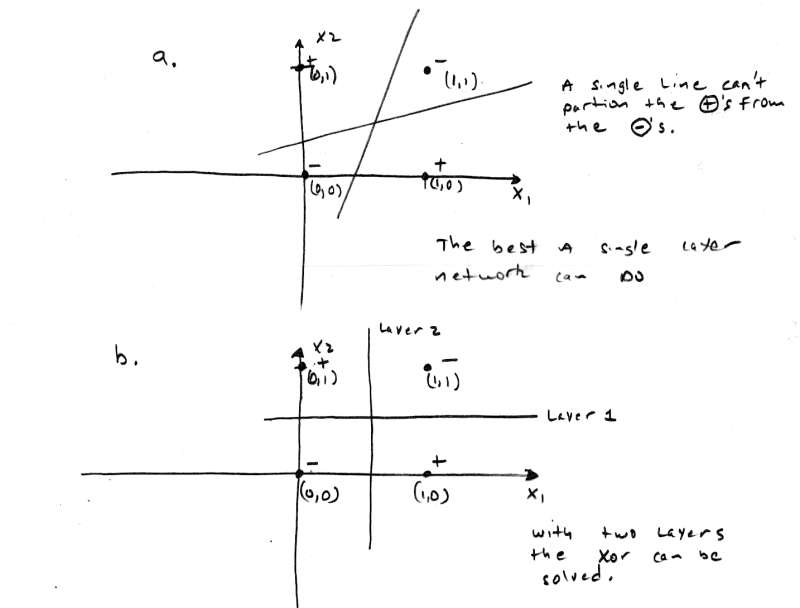 a.
x2
+
(0,1)
-
(1,1)
A single line can't
partion the ⊕'s from
the ⊖'s.
-
(0,0)
+
(1,0)
x1
The best A single layer
network can DO
b.
x2
Layer 2
+
(0,1)
-
(1,1)
Layer 1
-
(0,0)
+
(1,0)
x1
with two Layers
the Xor can be
solved.